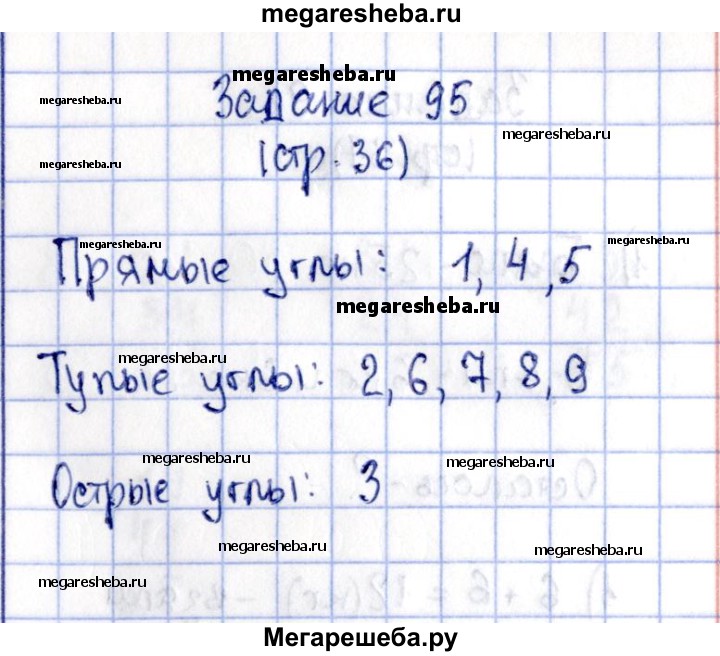 megaresheba.ru
megaresheba.ru
Задание 95
megaresheba.ru
megaresheba.ru
(стр. 36)
megaresheba.ru
megaresheba.ru
Прямые углы: 1, 4, 5
megaresheba.ru
megaresheba.ru
Тупые углы: 2, 6, 7, 8, 9
megaresheba.ru
megaresheba.ru
Острые углы: 3
megaresheba.ru
megaresheba.ru
megaresheba.ru
Мегарешеба.ру